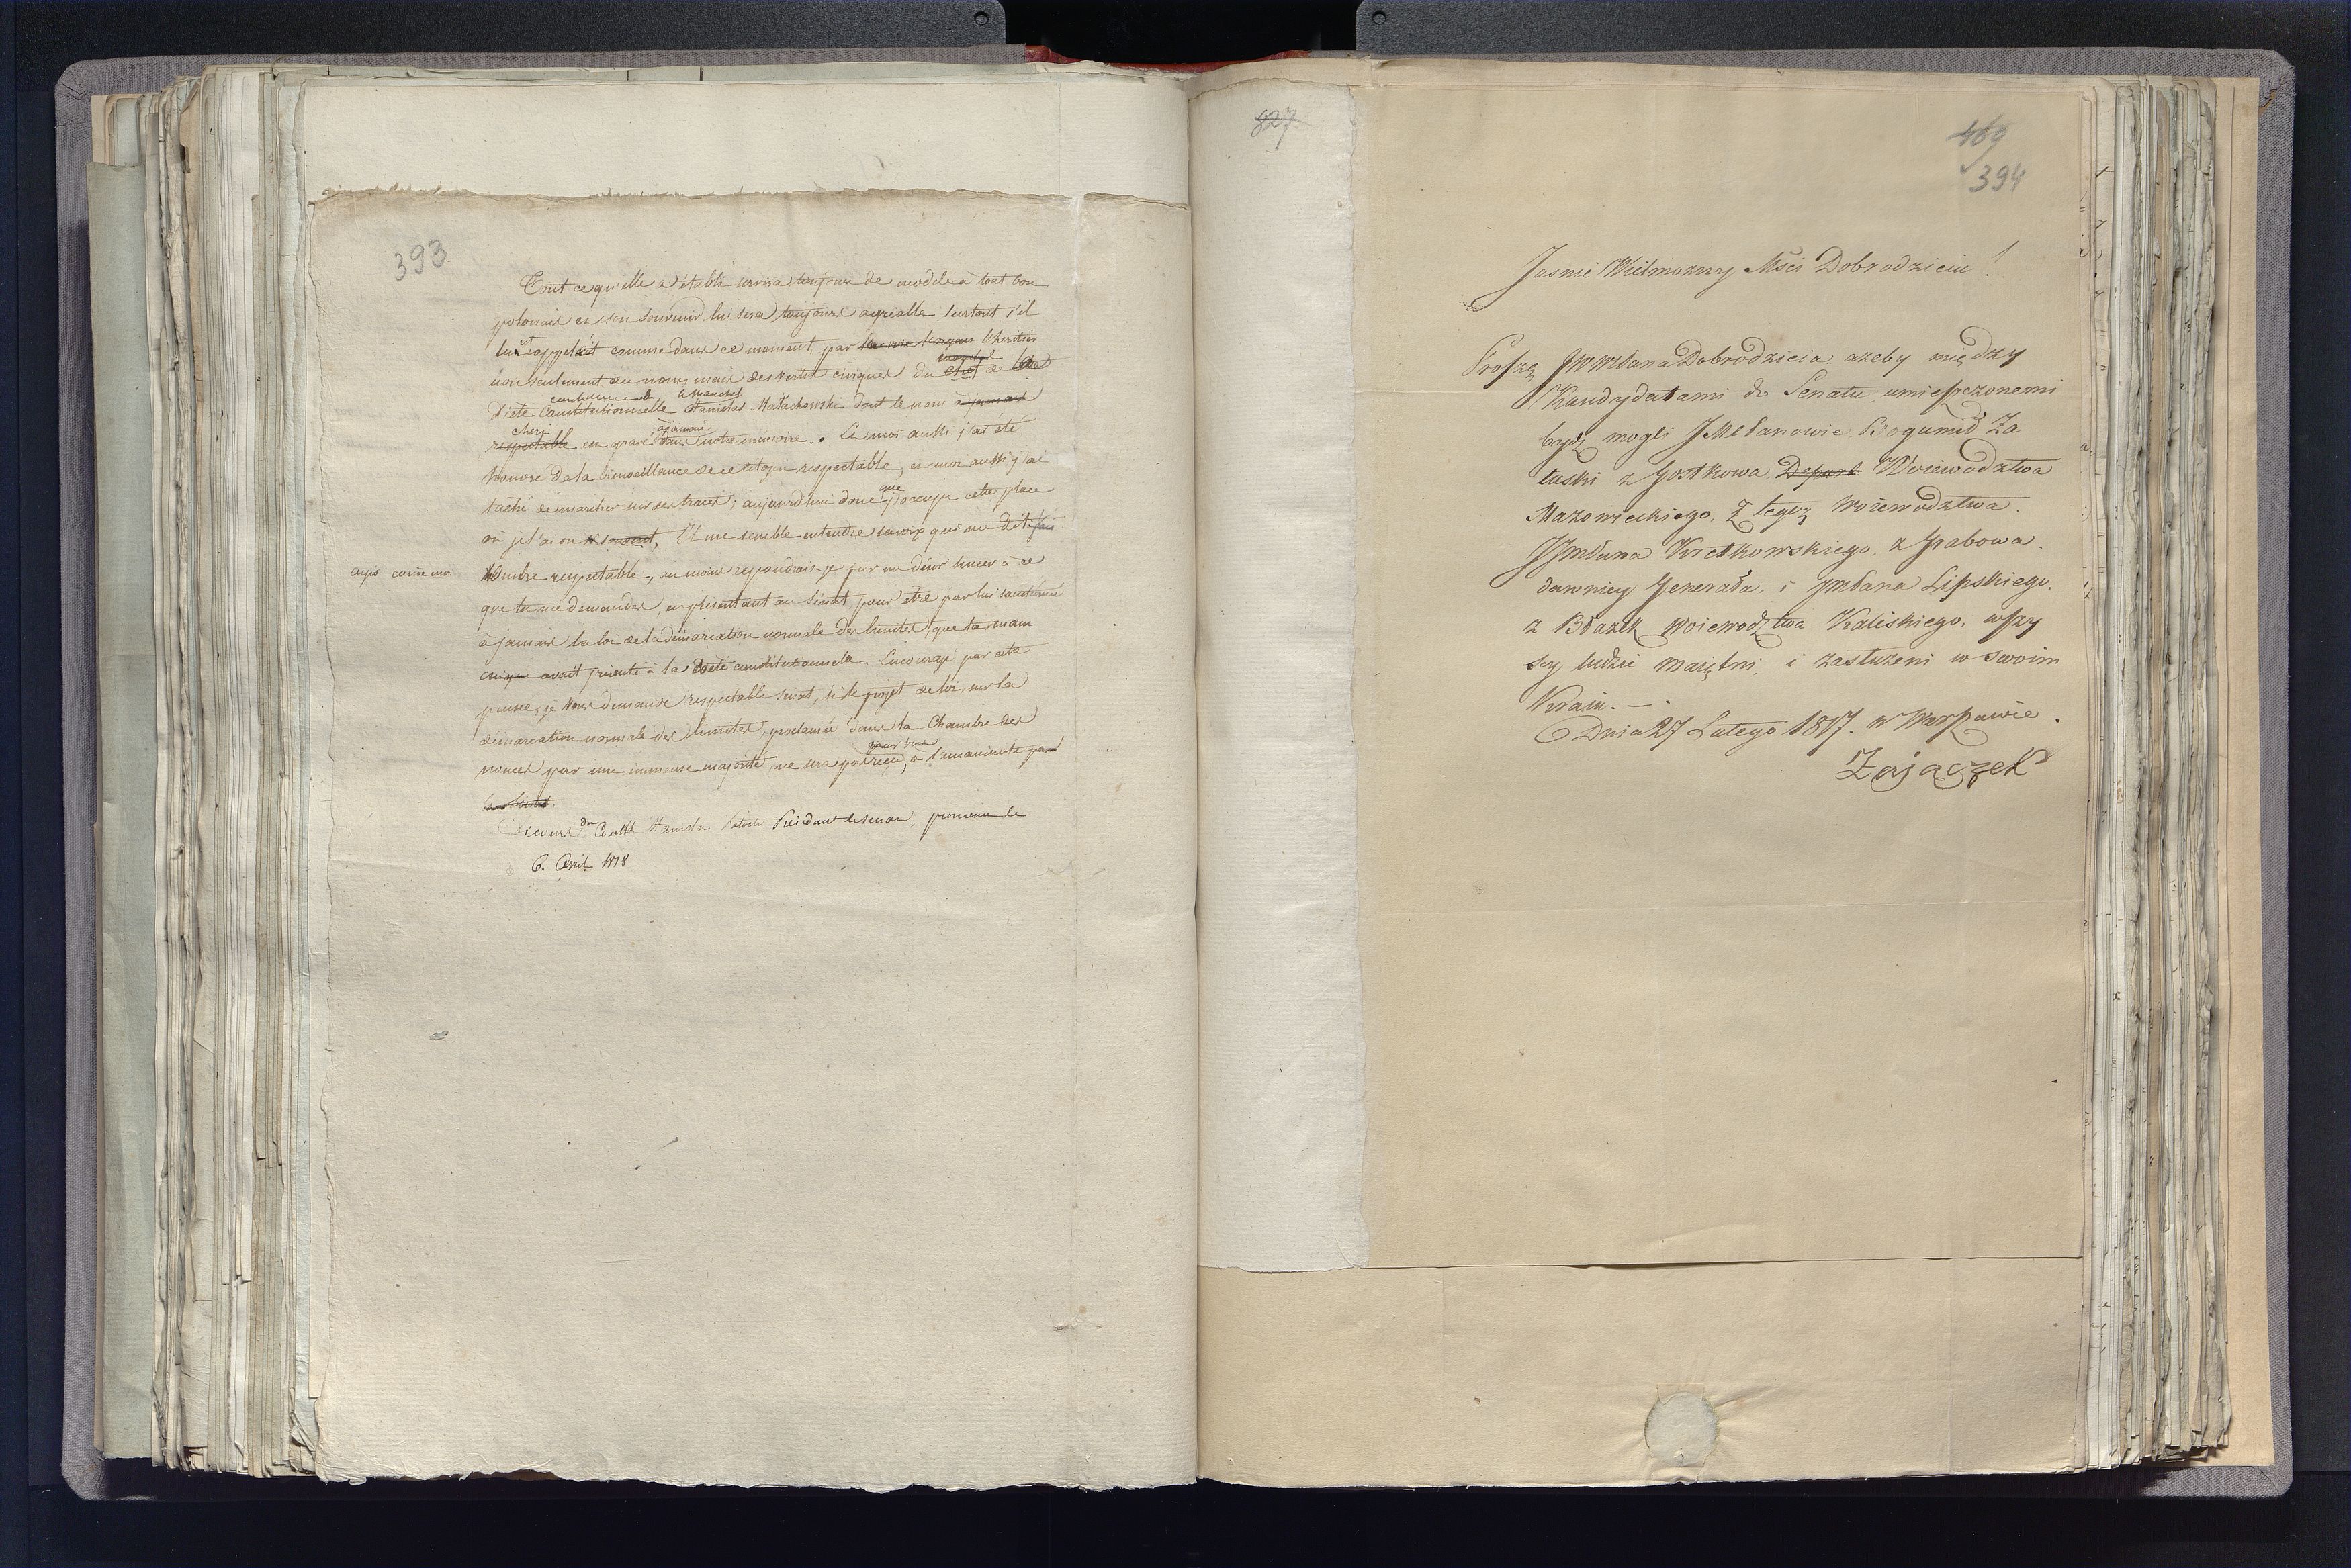 393.
Tout ce qu'elle a établi servira toujours de modele à tout bon
polonais et son souvenir lui sera toujours agréable surtout s'il
lui est rappelé comme dans ce moment par l'heritier
non seulement du nom, mais des vertus civiques du chef de la
marechal
Diete Constitutionnelle Stanislas Malachowski dont le nom à jamais
le Marechal
respectable est gravé dans notre memoire. Et moi aussi j'ai été
cheri à jamais
honoré de la bienveillance de ce citoyen respectable, et moi aussi j'ai
taché de marcher sur ses traces; aujourd'hui donc que j'occupe cette place
Il me semble entendre sa voix qui me dit: fais
ayes comme moi
Ombre respectable, au moins repondrais-je par un désir sincer à ce
que tu me demandes, en présentant au Sénat pour etre par lui sanctionné
à jamais la loi de la démarcation normale des limites, que ta main
avait presenté à la Diete constitutionnelle. Encouragé par cette
pensée, je vous demande respectable senat, si le projet de loi sur la
démarcation normale des limites, proclamée dans la Chambre des
nonces par une immense majorité, ne sera pas recu, à l'unanimité par
par vous
le Senat.
Discours du Comte Stanislas Potocki Président du Senat, prononcé le
6. Avril 1818
827
460
394
Jasnie Wielmożny Mści Dobrodzieiu!
Proszę JWWPana Dobrodzieia, azeby między
Kandydatami do Senatu umieszczonemi
bydź mogli JMPanowie Bogumił Za
łuski z Gostkowa Depart. Woiewodztwa
Mazowieckiego, z tegoz Woiewodztwa
JPmPana Kretkowskiego z Grabowa
dawniey Generała, i JmPana Lipskiego,
z Błaszek Woiewodztwa Kaliskiego, wszy
scy ludzie maiętni, i zasłużeni w swoim
Kraiu. —
Dnia 27 Lutego 1817. w Warszawie.
Zajączek